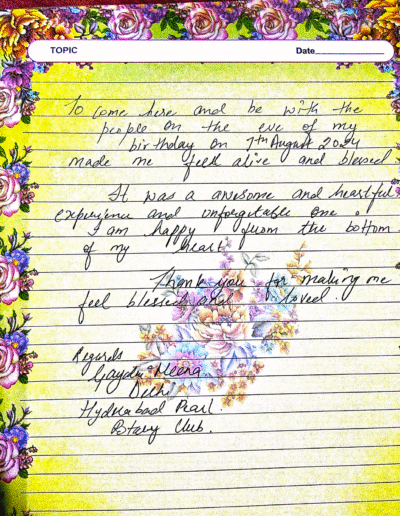 TOPIC Date
To come here and be with the
people on the eve of my
birthday on 7th August 2024
made me feel alive and blessed
It was a awesome and heartful
experience and unforgetable one !
I am happy from the bottom
of my heart
Thank you for making me
feel blessed and loved
Regards
Meena
Delhi
Hyderabad Pearl.
Club.